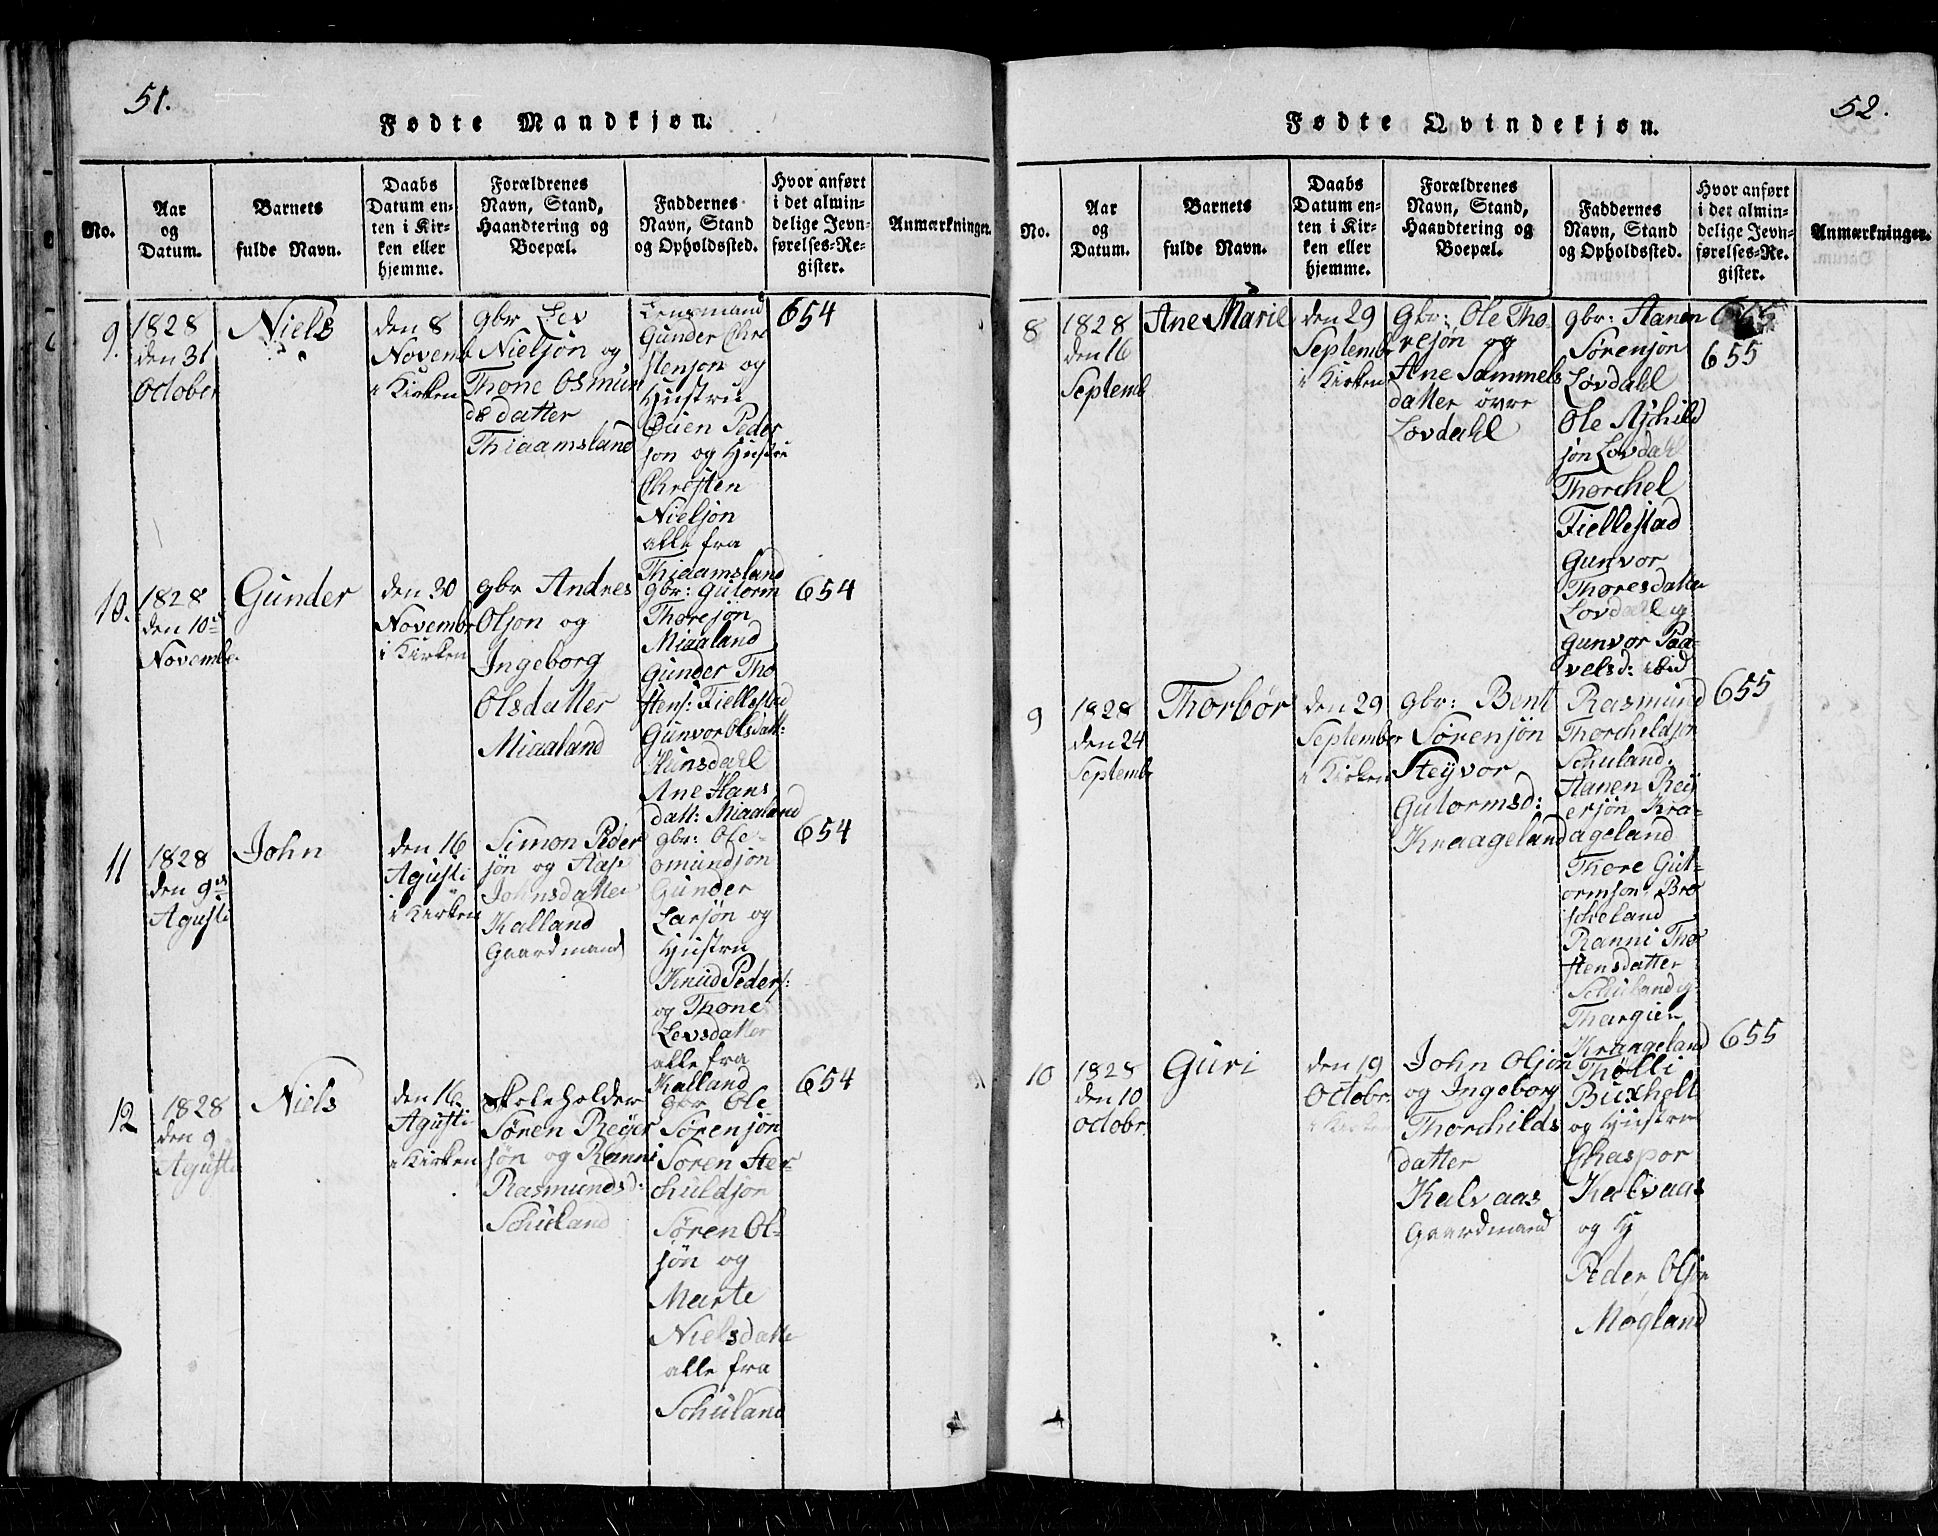 51.
Fødte Mandkjøn.
No.
Aar
og
Datum.
Barnets
fulde Navn.
Daabs
Datum en-
ten i Kir-
ken eller
hjemme.
Forældrenes
Navn, Stand,
Haandtering og
Boepæl.
Faddernes
Navn, Stand
og Opholdssted.
Hvor anført
i det almin-
delige Jevn-
førelses-Re-
gister.
Anmærkninger.
9.
1828
den 31
October
Niels
den 8
Novemb
i Kirken
gbr Lev
Nielsøn og
Thone Osmun
ds datter
Thiaamsland
Lensmand
Gunder Chre
stenson og
Hustru
Ouen Peder
son og Hustru
Christen
Nielson
alle fra
Thiaamsland
654
10.
1828
den 10de
Novembe.
Gunder
den 30
Novembr
i Kirken
gbr Andres
Olson og
Ingeborg
Olsdatter
Miaaland
gbr: Gutorm
Thoresøn
Miaaland
Gunder Tho
stens: Fiellestad
Gunvor Olsdatt:
Hunsdahl
Ane Hans
datt: Miaaland
654
11
1828
den 9de
Agusti
John
den 16
Agusti
i Kirken
Simon Peder
søn og Aase
Johnsdatter
Kalland
Gaardmand
gbr: Ole
omundsøn
Gunder
Larsøn og
Hustru
Knud Peders:
og Thone
Levsdatter
alle fra
Kalland
654
12
1828
den 9
Agusti
Niels
den 16.
Agusti
i Kirken
Skoleholder
Søren Reyer
søn og Ranni
Rasmundsd:
Schuland
gbr Ole
Sørensøn
Soren Her-
chuldsøn
Søren Ol-
søn og
Marte
Nielsdatte
alle fra
Schuland
654
52.
Fødte Qvindekjøn.
No.
Aar
og
Datum.
Barnets
fulde Navn.
Daabs
Datum en-
ten i Kir-
ken eller
hjemme.
Forældrenes
Navn, Stand,
Haandtering og
Boepæl.
Faddernes
Navn, Stand
og Opholdssted.
Hvor anført
i det almin-
delige Jevn-
førelses-Re-
gister.
Anmærkninger.
8
1828
den 16
Septemb
Ane Marie
den 29
Septembr
i Kirken
gbr: Ole Tho
resøn og
Ane Sammels
datter øvre
Lovdahl
gbr: Aanen
Sørenson
Løvdahl
Ole Aschild
søn Lovdahl
Thorchel
Fiellestad
Gunvor
Thoresdatter
Lovdahl og
Gunvor Paa-
velsd:
655
9
1828
den 24
Septemb
Thorbør
den 29
September
i Kirken
gbr: Bent
Sørensøn
Steyvor
Gutormsd:
Kraageland
Rasmund
Thorcheldsøn
Schuland.
Aanen Rey
ersøn Kra-
ageland
Thore Gut-
ormson. Bro
scheland
Ranni Tho
stensdatter
Schuland og
Thargier
Kraageland
655
10
1828
den 10
octobr.
Guri
den 19
Octobr.
i Kirken
John Olson
og Ingeborg
Thorchilds
datter
Kalvaas
Gaardmand
Thølli
Buxholt
og Hustru
Chaspor
Kalvaas
og Hy
Peder Olson
Møgland
655